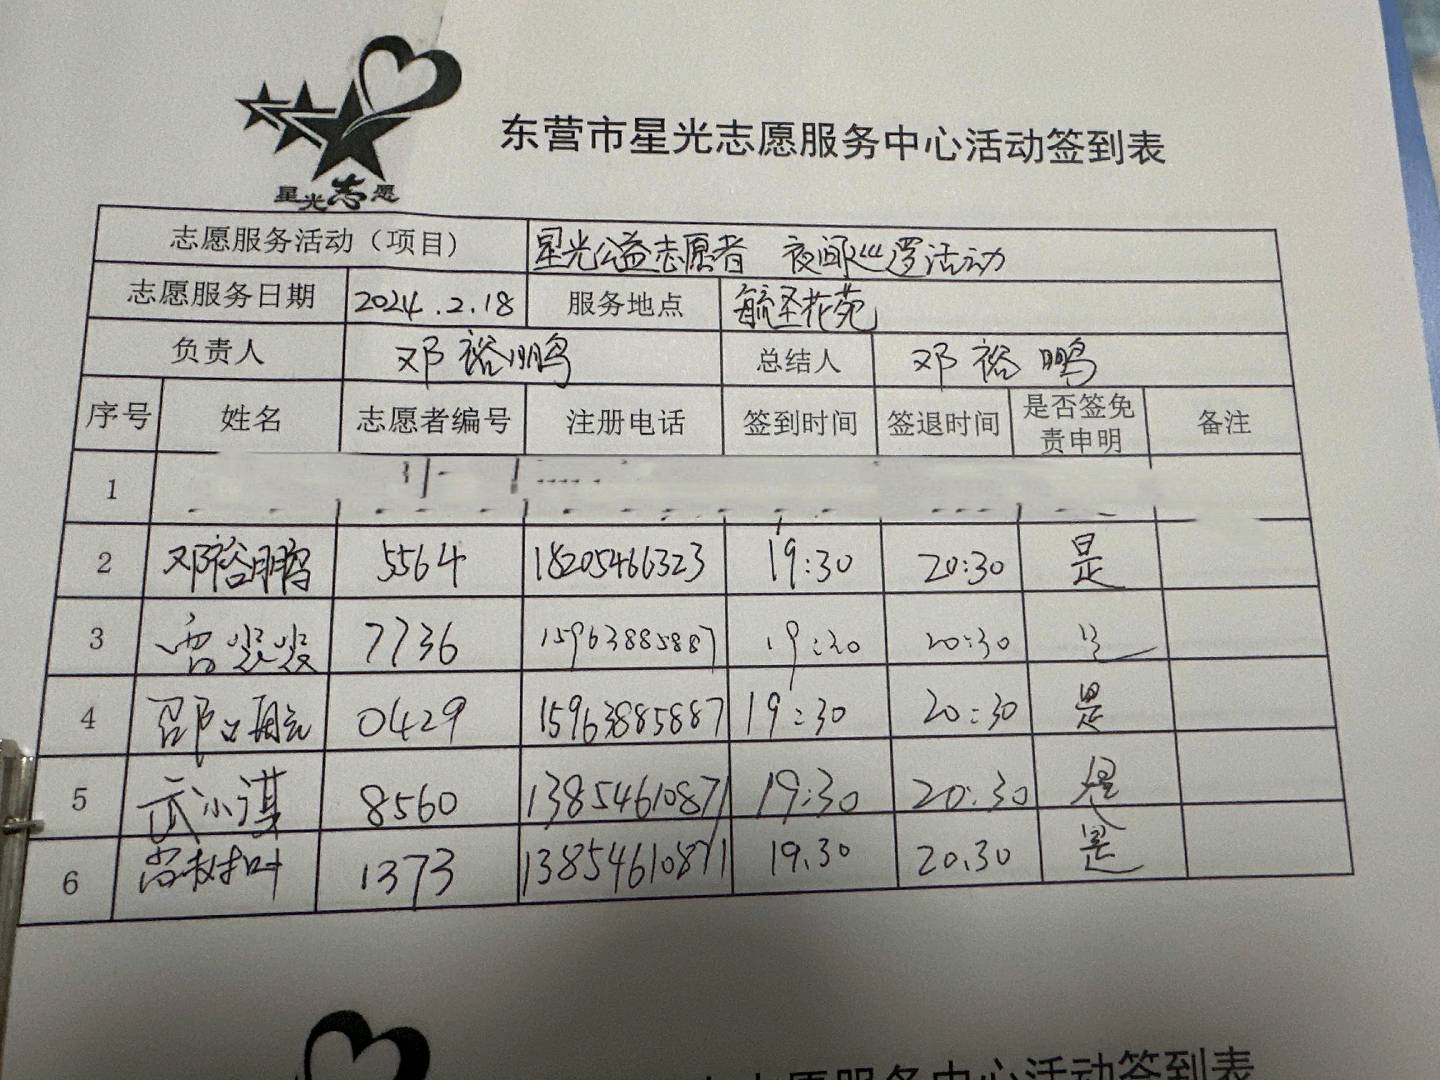 星光志愿
东营市星光志愿服务中心活动签到表
志愿服务活动（项目） 星光公益志愿者 夜间巡逻活动
志愿服务日期 2024.2.18 服务地点 毓圣花苑
负责人 邓裕鹏 总结人 邓裕鹏
序号 姓名 志愿者编号 注册电话 签到时间 签退时间 是否签免责申明 备注
1
2 邓裕鹏 5564 18205466323 19:30 20:30 是
3 7736 15963885887 19:30 20:30 是
4 0429 15963885887 19:30 20:30 是
5 武小谋 8560 13854610871 19:30 20:30 是
6 尚树叶 1373 13854610871 19.30 20.30 是
志愿服务中心活动签到表